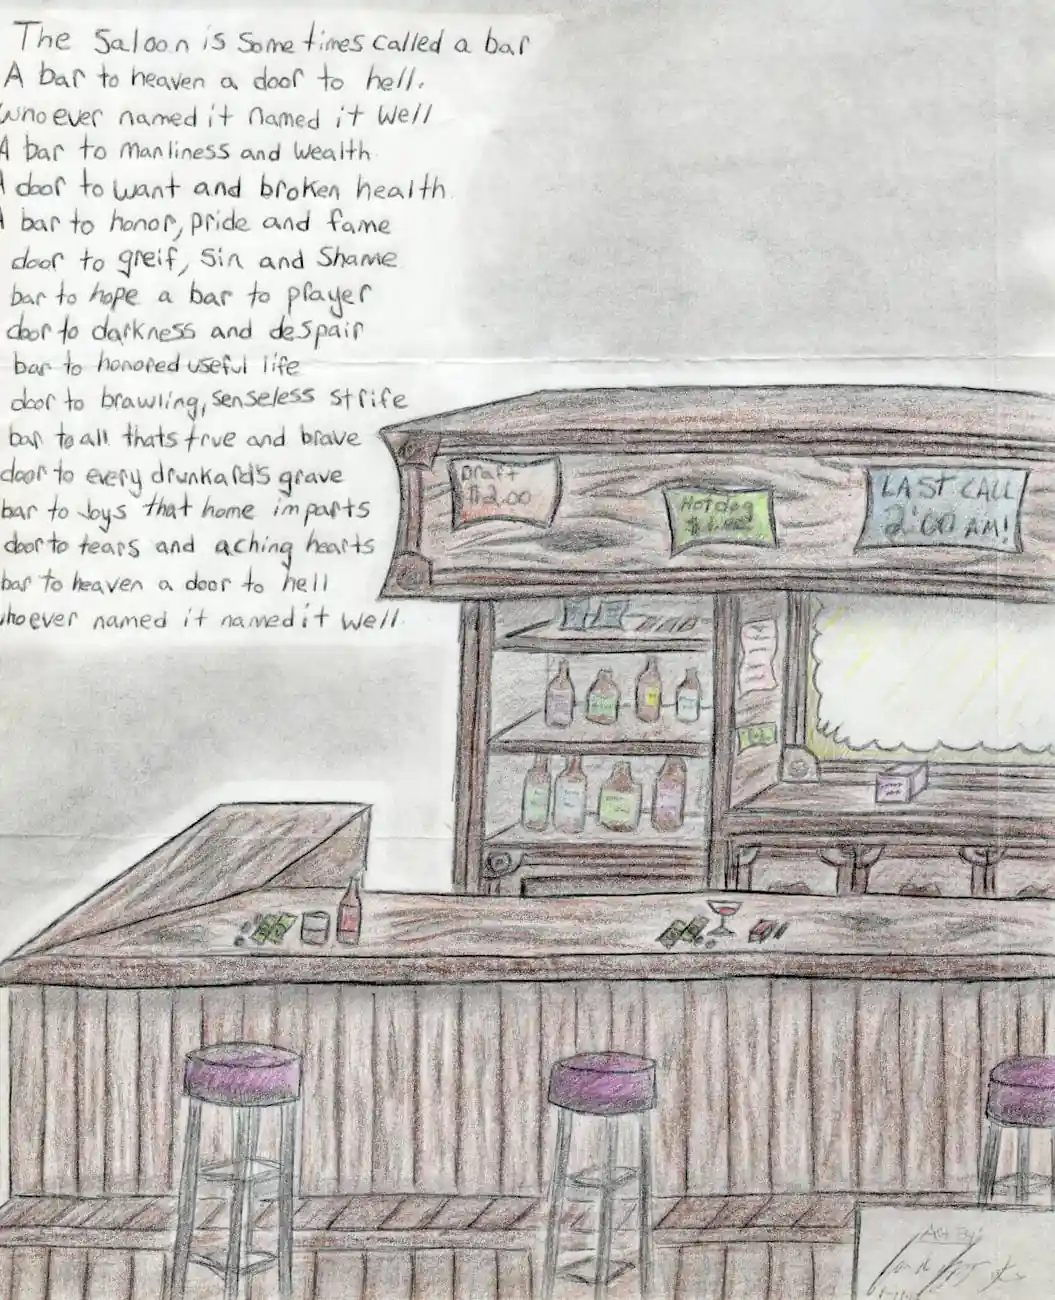 The Saloon is Some times called a bar
A bar to heaven a door to hell.
whoever named it named it well
A bar to manliness and wealth
A door to want and broken health
A bar to honor, pride and fame
door to greif, sin and shame
bar to hope a bar to prayer
door to darkness and despair
bar to honored useful life
door to brawling, senseless strife
bar to all thats true and brave
door to every drunkards grave
bar to Joys that home imparts
door to tears and aching hearts
bar to heaven a door to hell
whoever named it named it well.
Draft
$2.00
Hotdog
LAST CALL
2:00 AM!
Art By: